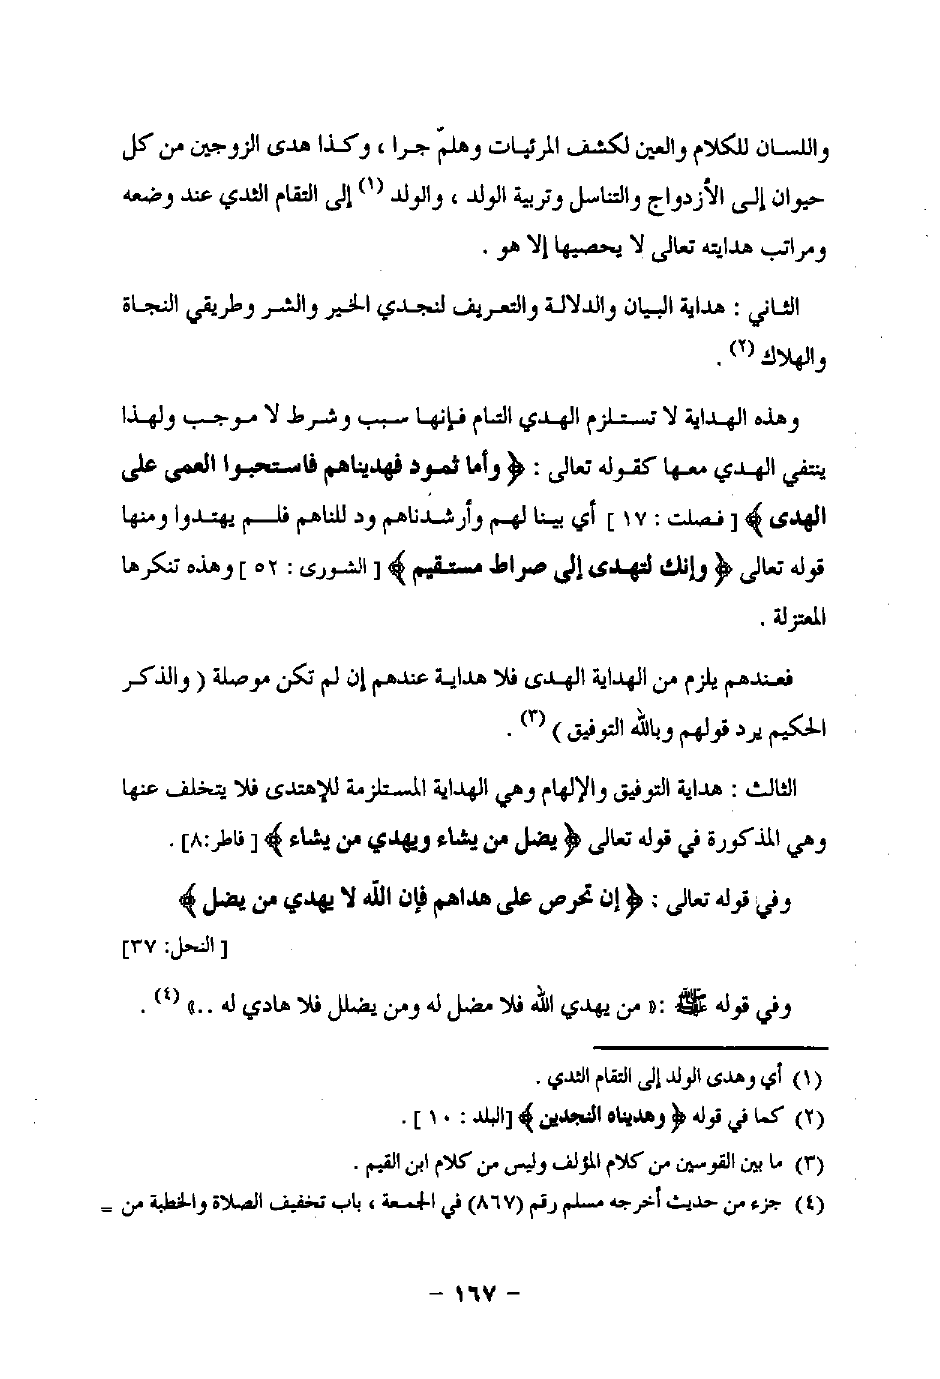 واللسان للكلام والعين لكشف المرئيات وهلمّ جرا ، وكذا هدى الزوجين من كل
حيوان إلى الأزدواج والتناسل وتربية الولد ، والولد (١) إلى التقام الثدي عند وضعه
ومراتب هدايته تعالى لا يحصيها إلا هو .
الثاني : هداية البيان والدلالة والتعريف لنجدي الخير والشر وطريقي النجاة
والهلاك (٢) .
وهذه الهداية لا تستلزم الهدي التام فإنها سبب وشرط لا موجب ولهذا
ينتفي الهدي معها كقوله تعالى : ﴿ وأما ثمود فهديناهم فاستحبوا العمى على
الهدى ﴾ [ فصلت : ١٧ ] أي بينا لهم وأرشدناهم ود للناهم فلم يهتدوا ومنها
قوله تعالى ﴿ وإنك لتهدى إلى صراط مستقيم ﴾ [ الشورى : ٥٢ ] وهذه تنكرها
المعتزلة .
فعندهم يلزم من الهداية الهدى فلا هداية عندهم إن لم تكن موصلة ( والذكر
الحكيم يرد قولهم وبالله التوفيق ) (٣) .
الثالث : هداية التوفيق والإلهام وهي الهداية المستلزمة للإهتدى فلا يتخلف عنها
وهي المذكورة في قوله تعالى ﴿ يضل من يشاء ويهدي من يشاء ﴾ [ فاطر:٨] .
وفي قوله تعالى : ﴿ إن تحرص على هداهم فإن الله لا يهدي من يضل ﴾
[ النحل: ٣٧]
وفي قوله ﷺ :« من يهدي الله فلا مضل له ومن يضلل فلا هادي له ..» (٤) .
(١) أي وهدى الولد إلى التقام الثدي .
(٢) كما في قوله ﴿ وهديناه النجدين ﴾ [البلد : ١٠ ] .
(٣) ما بين القوسين من كلام المؤلف وليس من كلام ابن القيم .
(٤) جزء من حديث أخرجه مسلم رقم (٨٦٧) في الجمعة ، باب تخفيف الصلاة والخطبة من =
- ١٦٧ -